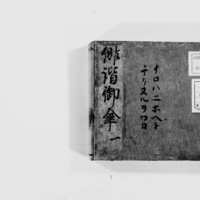 俳諧御傘 一
イロハニホヘト
チリヌルヲワカ